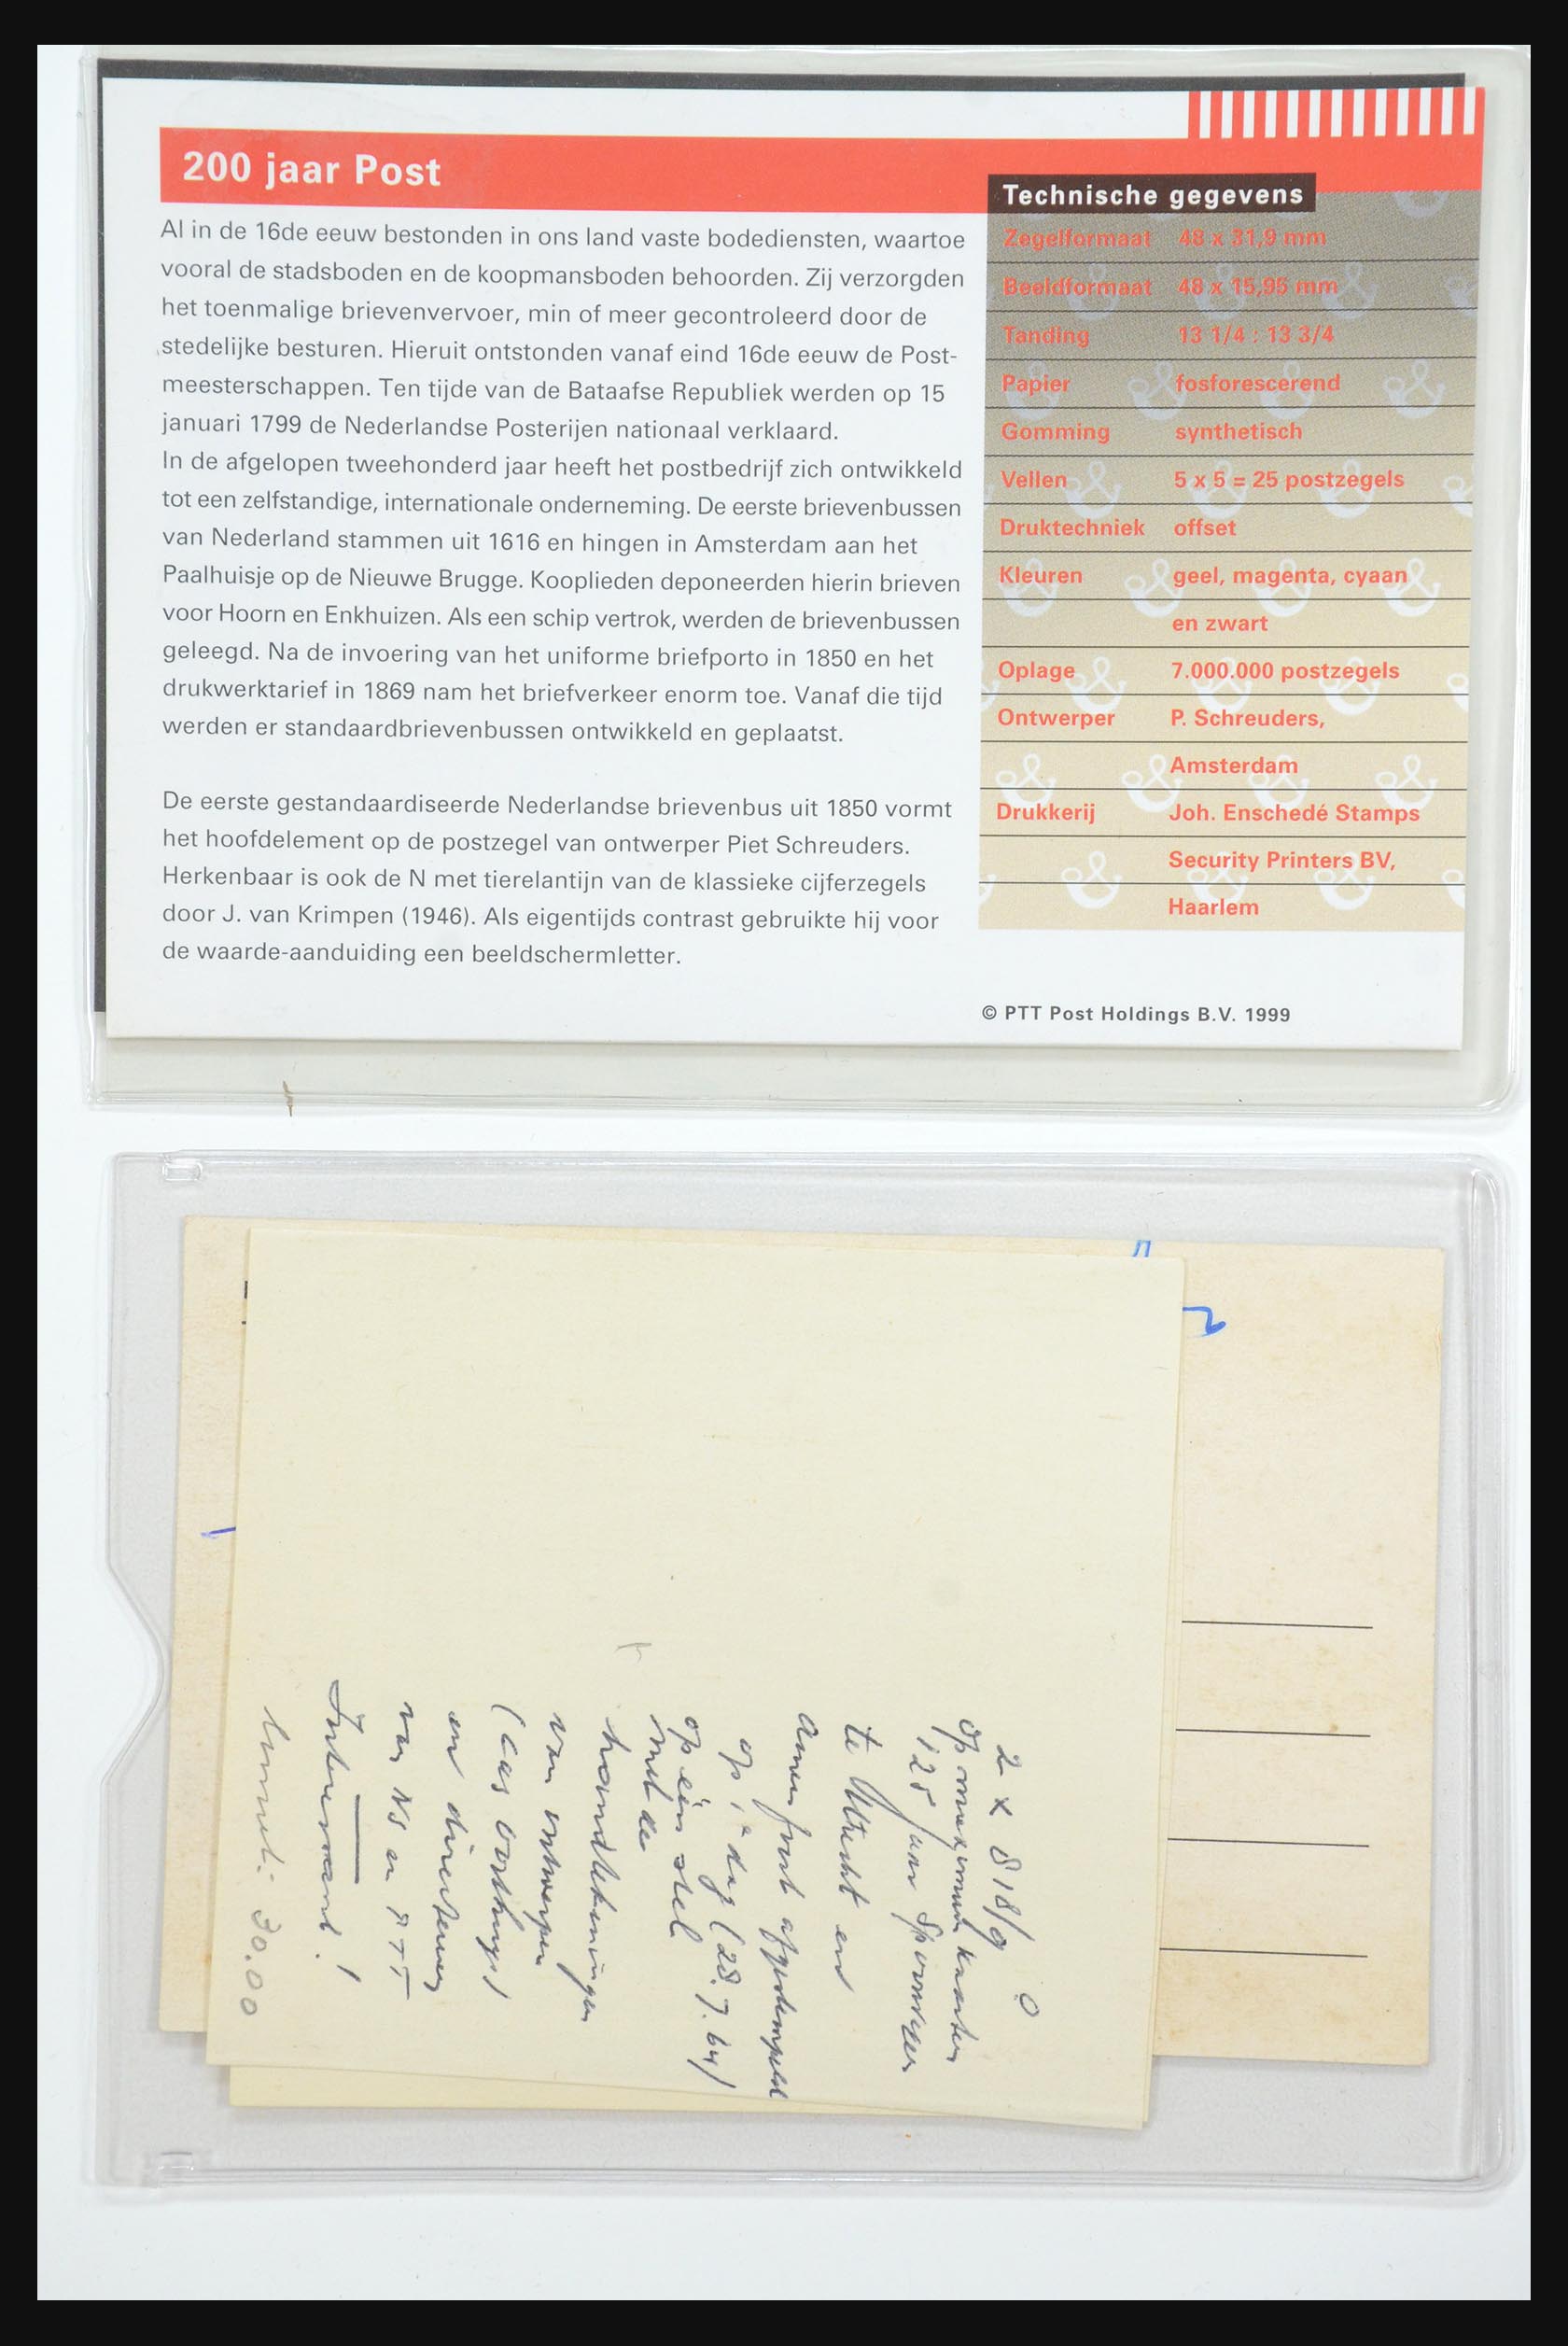 200 jaar Post
Al in de 16de eeuw bestonden in ons land vaste bodediensten, waartoe
vooral de stadsboden en de koopmansboden behoorden. Zij verzorgden
het toenmalige brievenvervoer, min of meer gecontroleerd door de
stedelijke besturen. Hieruit ontstonden vanaf eind 16de eeuw de Post-
meesterschappen. Ten tijde van de Bataafse Republiek werden op 15
januari 1799 de Nederlandse Posterijen nationaal verklaard.
In de afgelopen tweehonderd jaar heeft het postbedrijf zich ontwikkeld
tot een zelfstandige, internationale onderneming. De eerste brievenbussen
van Nederland stammen uit 1616 en hingen in Amsterdam aan het
Paalhuisje op de Nieuwe Brugge. Kooplieden deponeerden hierin brieven
voor Hoorn en Enkhuizen. Als een schip vertrok, werden de brievenbussen
geleegd. Na de invoering van het uniforme briefporto in 1850 en het
drukwerktarief in 1869 nam het briefverkeer enorm toe. Vanaf die tijd
werden er standaardbrievenbussen ontwikkeld en geplaatst.
De eerste gestandaardiseerde Nederlandse brievenbus uit 1850 vormt
het hoofdelement op de postzegel van ontwerper Piet Schreuders.
Herkenbaar is ook de N met tierelantijn van de klassieke cijferzegels
door J. van Krimpen (1946). Als eigentijds contrast gebruikte hij voor
de waarde-aanduiding een beeldschermletter.
Technische gegevens
Zegelformaat 48 x 31,9 mm
Beeldformaat 48 x 15,95 mm
Tanding 13 1/4 : 13 3/4
Papier fosforescerend
Gomming synthetisch
Vellen 5 x 5 = 25 postzegels
Druktechniek offset
Kleuren geel, magenta, cyaan
en zwart
Oplage 7.000.000 postzegels
Ontwerper P. Schreuders,
Amsterdam
Drukkerij Joh. Enschedé Stamps
Security Printers BV,
Haarlem
© PTT Post Holdings B.V. 1999
2 x 818/9
op maximum kaarten
125 jaar Spoorwegen
te Utrecht en
Amersfoort afgestempeld
op 1e dag (28.7.64)
op één stel
met de
handtekeningen
van ontwerper
(Cas Oorthuys)
en directeuren
van NS en PTT
Interessant!
30.00